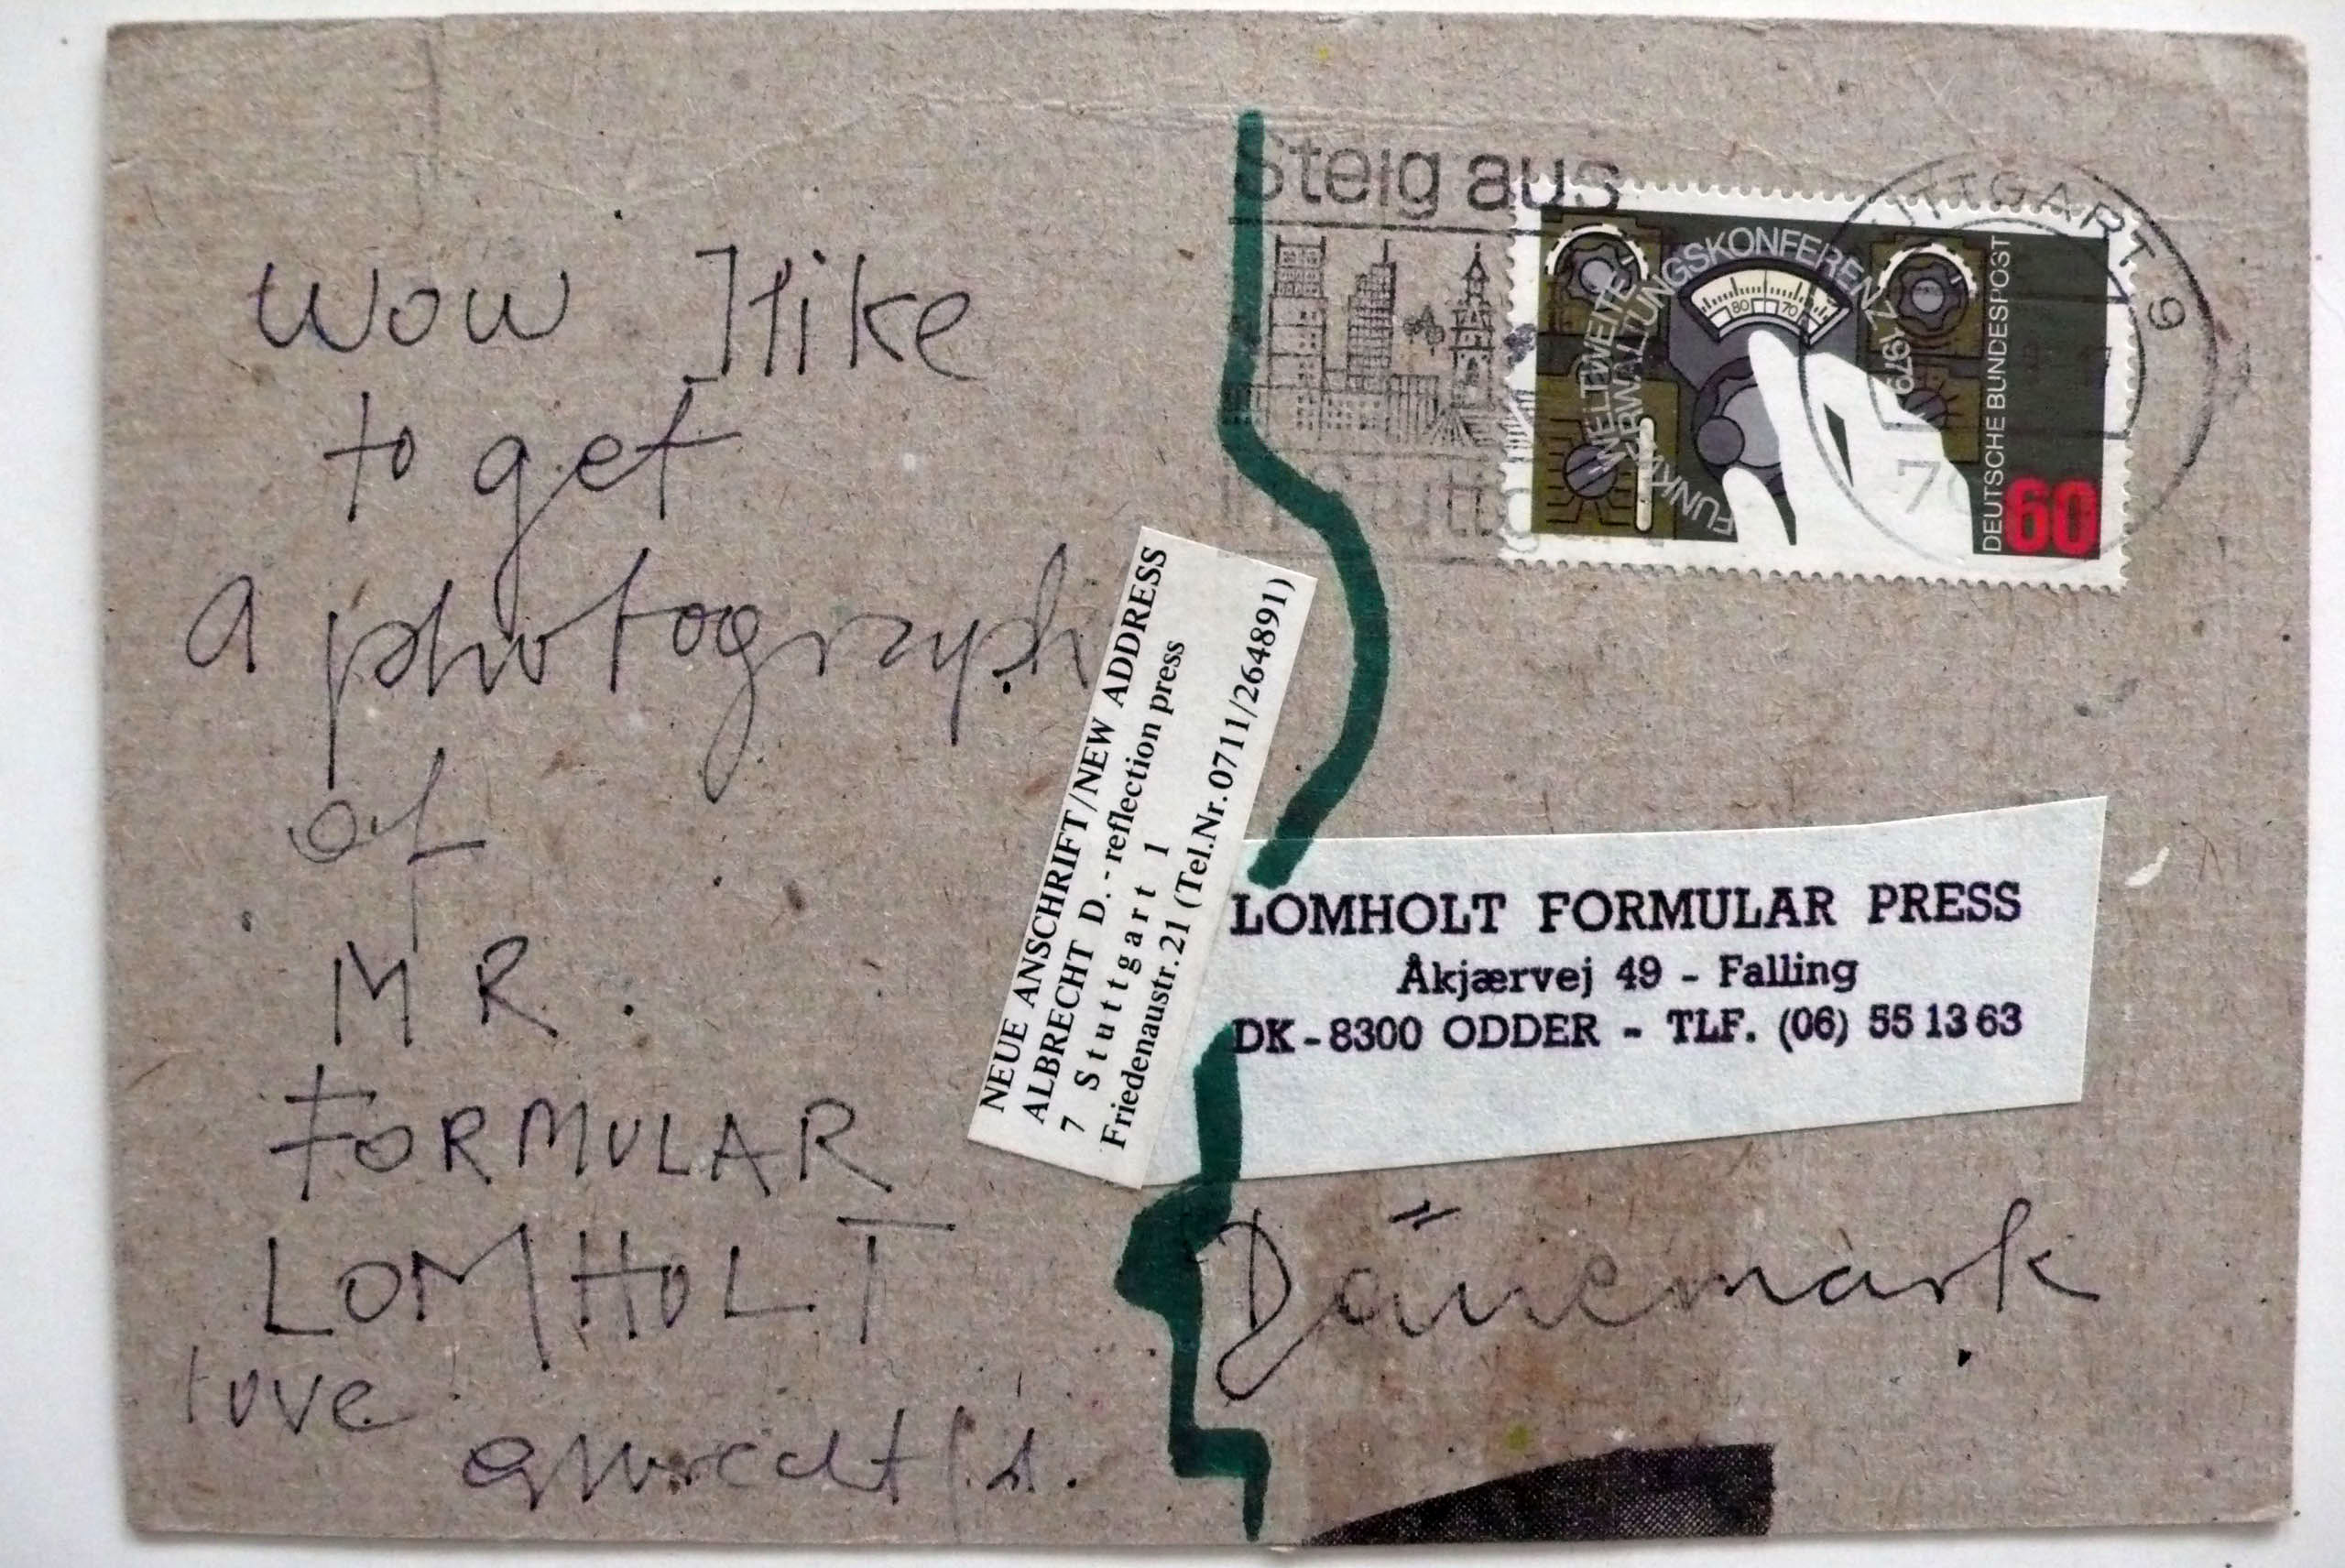 Wow I like
to get
a photograph
of
MR.
FORMULAR
LOMHOLT
love
albrecht / d.
NEUE ANSCHRIFT/NEW ADDRESS
ALBRECHT D.-reflection press
7 Stuttgart 1
Friedenaustr. 21 (Tel.Nr. 0711/264891)
Steig aus
in Stuttgart
UTTGART 9
WELTWEITE
FUNKVERWALTUNGSKONFERENZ 1979
80 70
DEUTSCHE BUNDESPOST
60
LOMHOLT FORMULAR PRESS
Åkjærvej 49 - Falling
DK-8300 ODDER - TLF. (06) 55 13 63
Dänemark